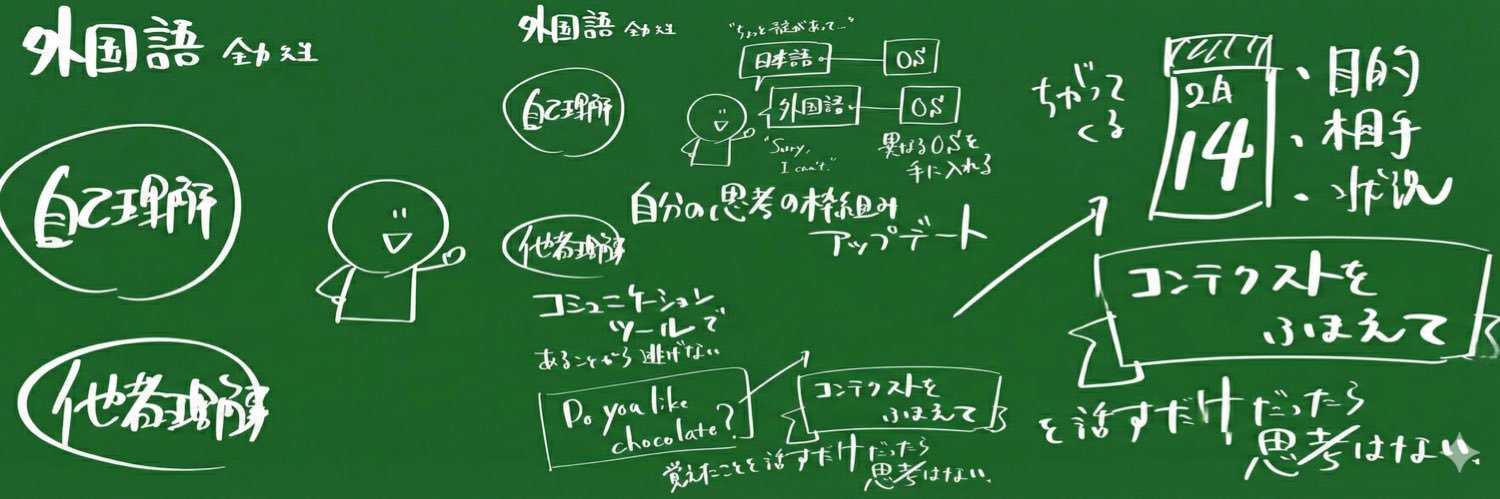 外国語
自己理解
他者理解
外国語
自己理解
他者理解
"ちょっと予定があって…"
日本語
OS
外国語
OS
"Sorry,
I can't."
異なるOSを
手に入れる
自分の思考の枠組み
アップデート
コミュニケーション
ツールで
あることから逃げない
Do you like
chocolate?
コンテクストを
ふまえて
覚えたことを話すだけだったら
思考はない
ちがって
くる
2月
14
・目的
・相手
・状況
コンテクストを
ふまえて
を話すだけだったら
思考はない